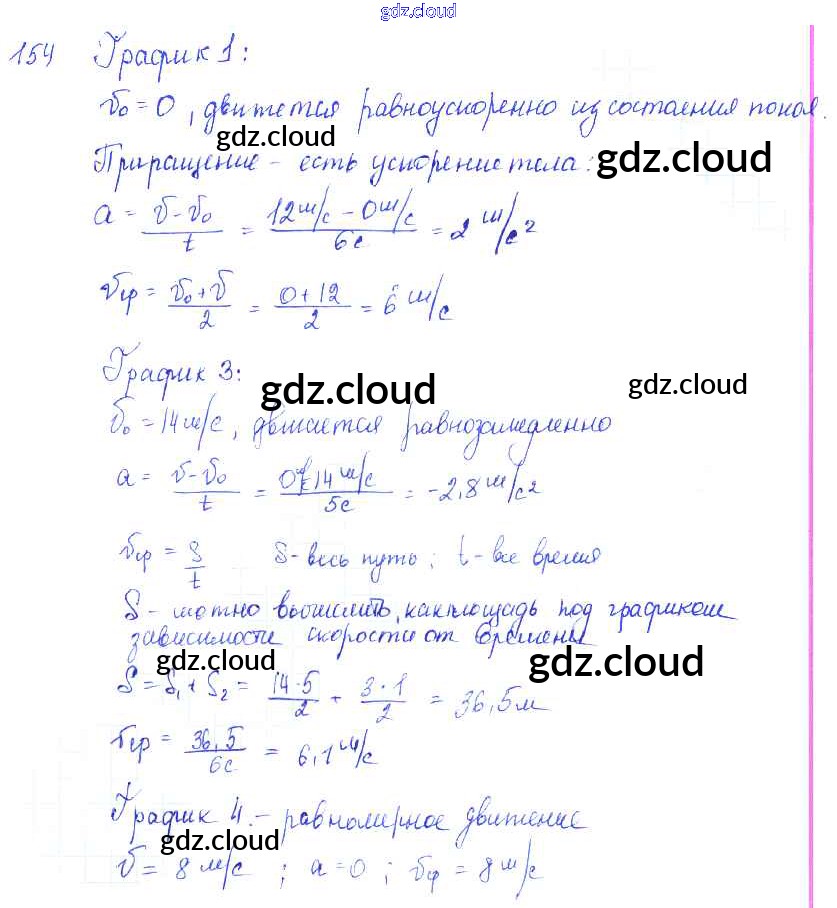 gdz.cloud
154 График 1:
v₀ = 0, движется равноускоренно из состояния покоя.
gdz.cloud
Приращение - есть ускорение тела: gdz.cloud
a = (v - v₀)/t = (12 м/с - 0 м/с)/6с = 2 м/с²
vср = (v₀ + v)/2 = (0 + 12)/2 = 6 м/с
График 3:
gdz.cloud gdz.cloud
v₀ = 14 м/с, движется равнозамедленно
a = (v - v₀)/t = (0 - 14 м/с)/5с = -2,8 м/с²
vср = S/t S - весь путь; t - все время
S - можно вычислить, как площадь под графиком
зависимости скорости от времени
gdz.cloud gdz.cloud
S = S₁ + S₂ = (14·5)/2 + (3·1)/2 = 36,5 м
vср = 36,5/6с = 6,1 м/с
График 4. - равномерное движение
gdz.cloud
v = 8 м/с ; a = 0 ; vср = 8 м/с
gdz.cloud